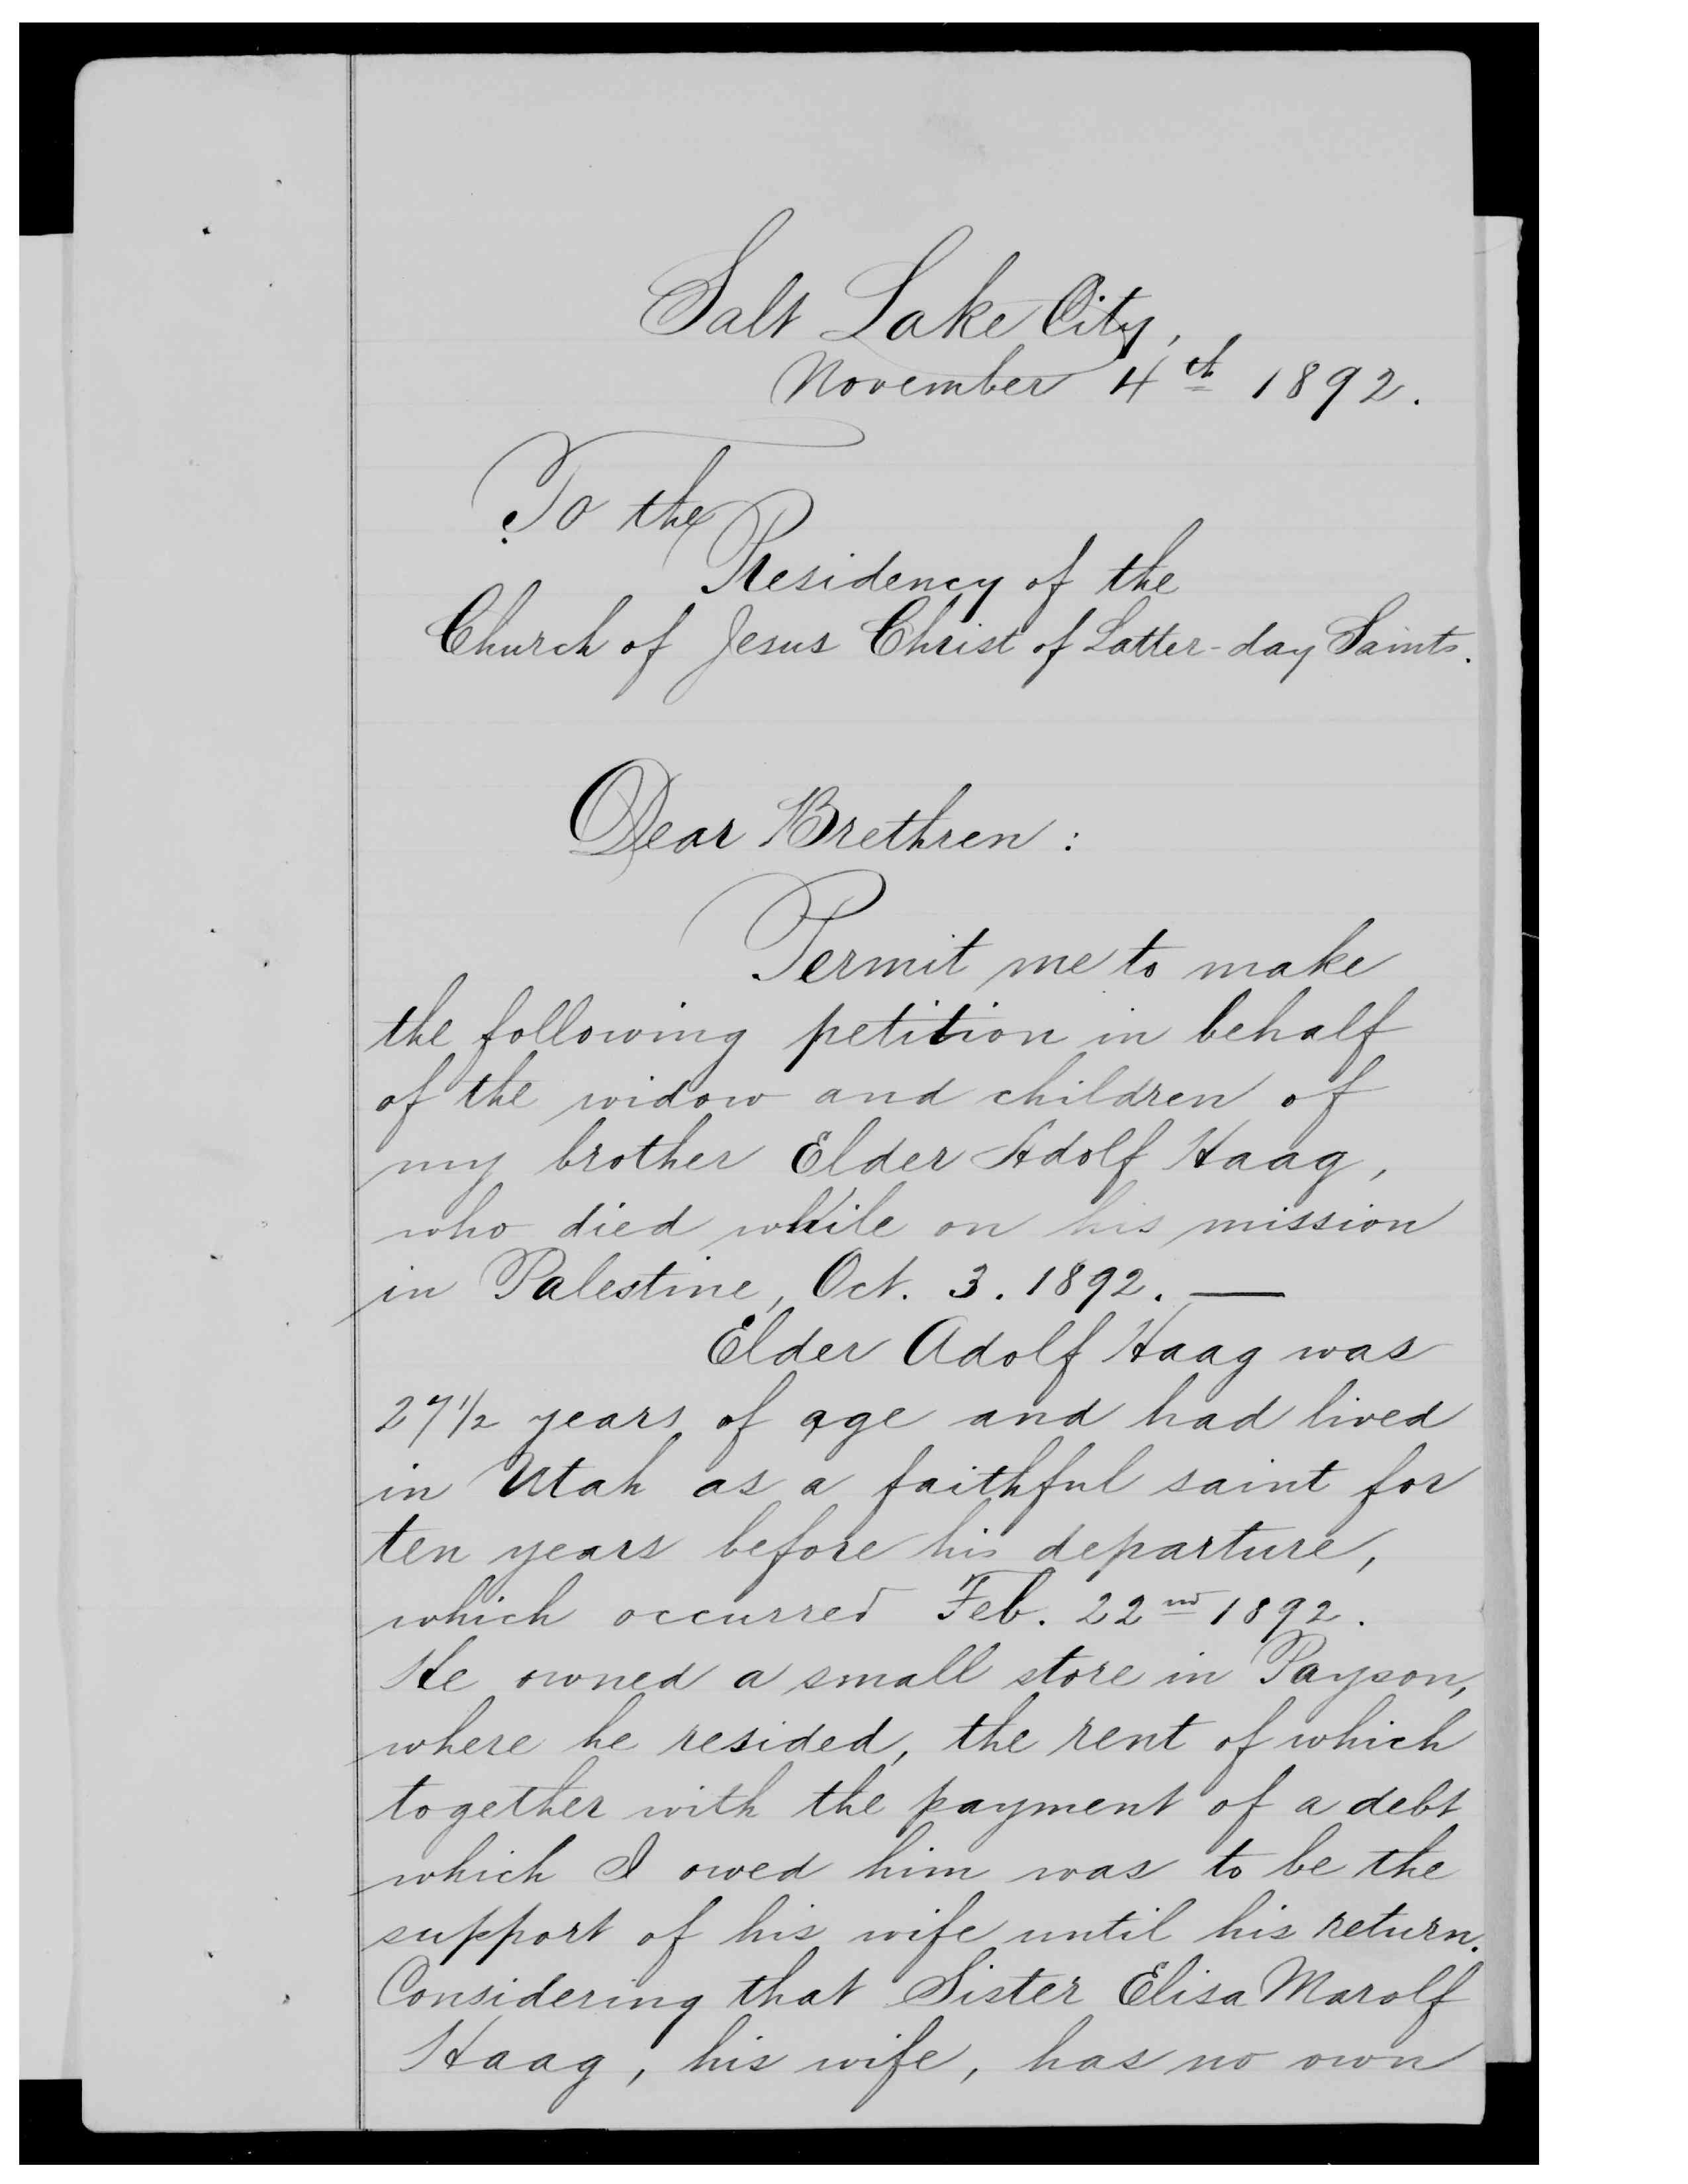 Salt Lake City,
November 4th 1892.
To the
Presidency of the
Church of Jesus Christ of Latter-day Saints.
Dear Brethren:
Permit me to make
the following petition in behalf
of the widow and children of
my brother Elder Adolf Haag,
who died while on his mission
in Palestine, Oct. 3. 1892. —
Elder Adolf Haag was
27 1/2 years of age and had lived
in Utah as a faithful saint for
ten years before his departure,
which occurred Feb. 22nd 1892.
He owned a small store in Payson,
where he resided, the rent of which
together with the payment of a debt
which I owed him was to be the
support of his wife until his return.
Considering that Sister Elisa Marolf
Haag, his wife, has no own